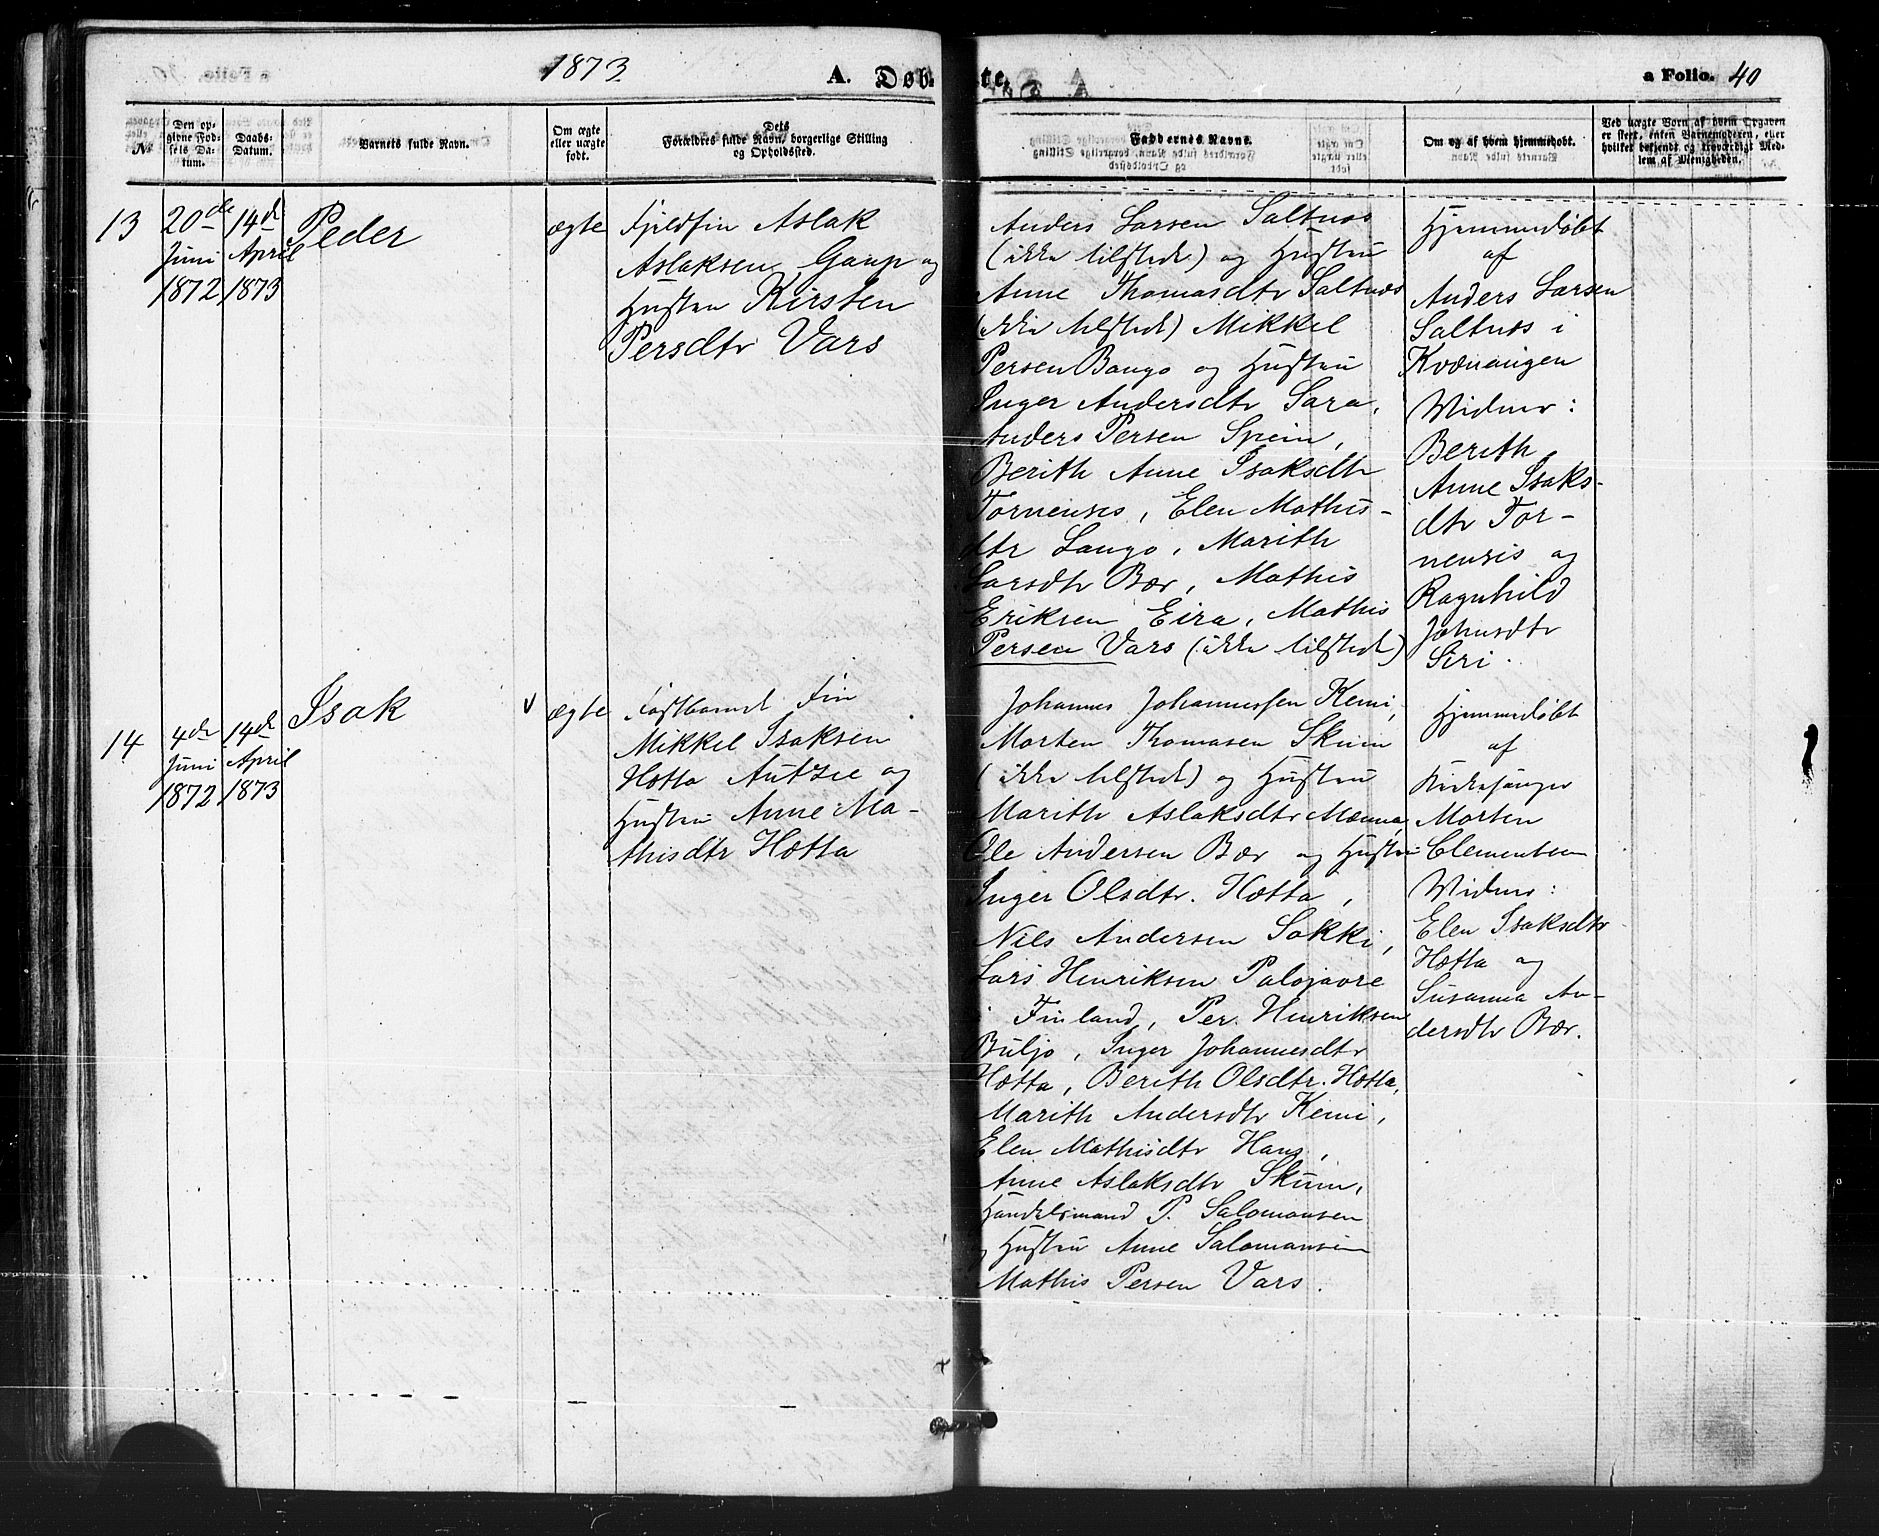 1873
A. Døb
te.
a Folio. 40
№
Den op-
givne Fød-
sels Da-
tum.
Daabs-
Datum.
Barnets fulde Navn.
Om ægte
eller uægte
født.
Dets
Forældres fulde Navn, borgerlige Stilling
og Opholdssted.
Faddernes Navne.
Om og af hvem hjemmedøbt.
Ved uægte Børn af hvem Opgaven
er skeet, enten Barnemoderen, eller
hvilket bekjendt og troværdigt Med-
lem af Menigheden.
13
20de
Juni
1872
14de
April
1873
Peder
ægte
Fjeldfin Aslak
Aslaksen Gaup og
Hustru Kirsten
Persdtr Vars
Anders Larsen Saltnes
(ikke tilstede) og Hustru
Anne Thomasdtr Saltnes
(ikke tilstede) Mikkel
Persen Bango og Hustru
Inger Andersdtr Sara,
Anders Persen Spein,
Berith Anne Isaksdtr
Tornensis, Elen Mathis-
dtr Lango, Marith
Larsdtr Bær, Mathis
Eriksen Eira, Mathis
Persen Vars (ikke tilstede)
Hjemmedøbt
af
Anders Larsen
Saltnes i
Kvænangen
Vidner:
Berith
Anne Isaks-
dtr Tor-
nensis og
Ragnhild
Johnsdtr
Siri.
14
4de
Juni
1872
14de
April
1873
Isak
v
ægte
Fastboende Fin
Mikkel Isaksen
Hætta Autzie og
Hustru Anne Ma-
thisdtr Hætta
Johannes Johannessen Kemi,
Morten Thomasen Skum
(ikke tilstede) og Hustru
Marith Aslaksdtr Mænna,
Ole Andersen Bær og Hustru
Inger Olsdtr. Hætta,
Nils Andersen Sokki,
Lars Henriksen Palojavre
i Finland, Per Henriksen
Buljo, Inger Johannesdtr
Hætta, Berith Olsdtr. Hætta,
Marith Andersdtr Kemi,
Elen Mathisdtr Hans,
Anne Aslaksdtr Skum,
Handelsmand P. Salomonsen
og Hustru Anne Salomonsen
Mathis Persen Vars.
Hjemmedøbt
af
Kirkesanger
Morten
Clementsen
Vidner:
Elen Isaksdtr
Hætta og
Susanna An-
dersdtr Bær.